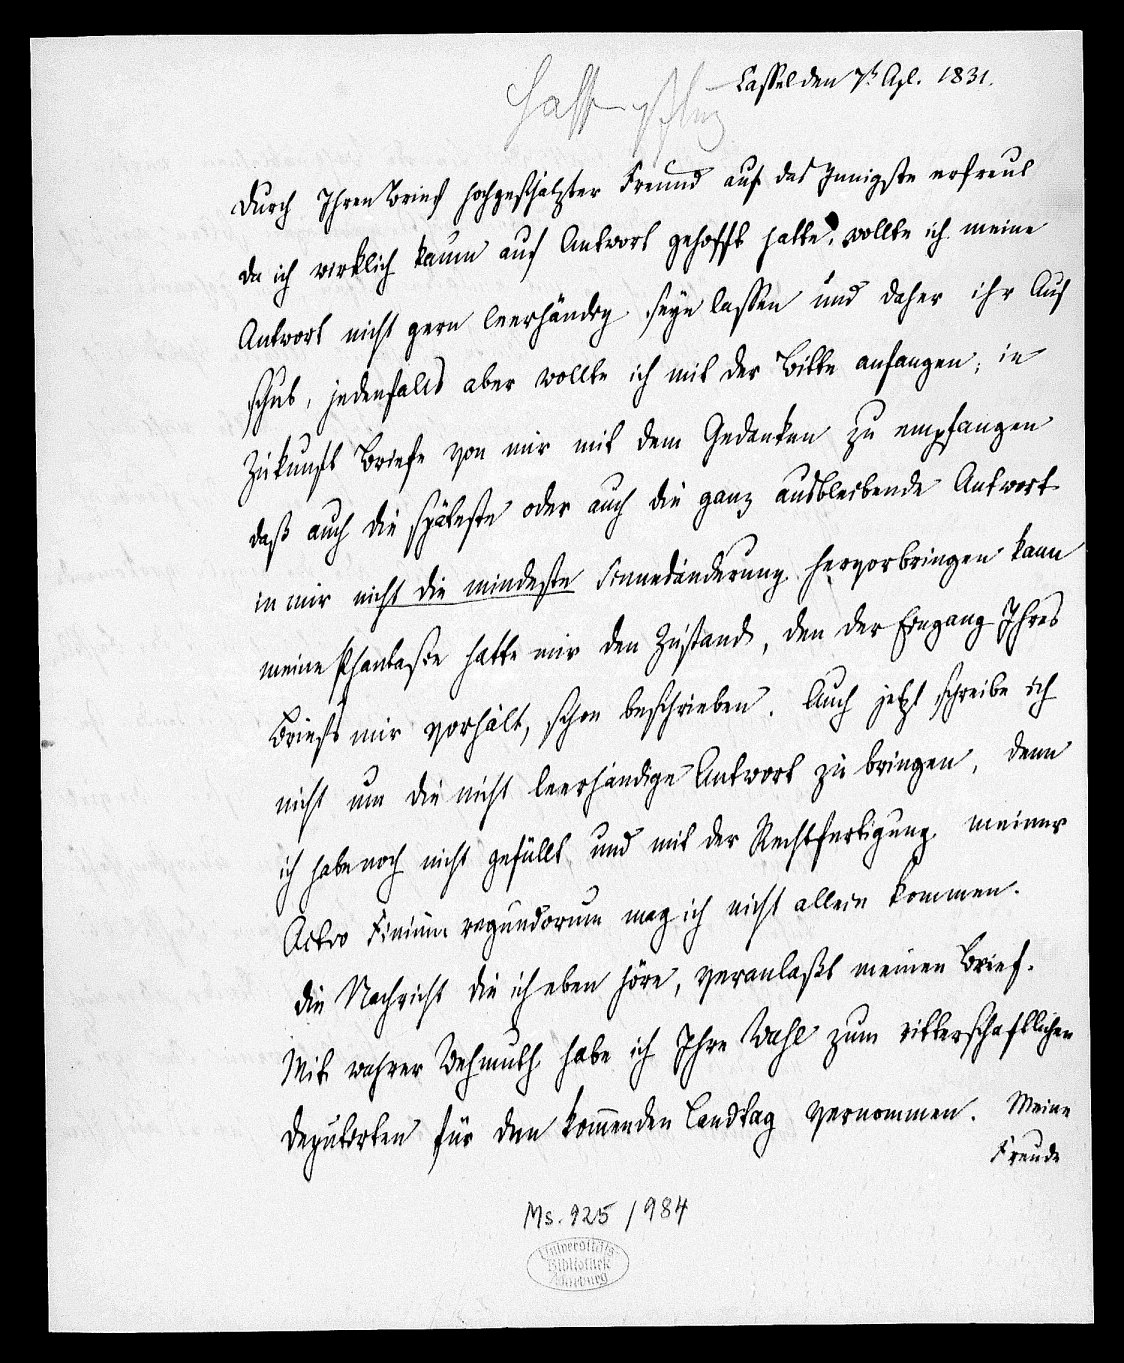 Cassel den 7t. Apl. 1831.
Hassenpflug
Durch Ihren Brief hochgeschätzter Freund auf das Innigste erfreut
da ich wirklich kaum auf Antwort gehofft hatte, wollte ich meine
Antwort nicht gern leerhändig seyn lassen und daher ihr Auf
schub, jedenfalls aber wollte ich mit der Bitte anfangen; in
Zukunft Briefe von mir mit dem Gedanken zu empfangen
daß auch die späteste oder auch die ganz ausbleibende Antwort
in mir nicht die mindeste Sinnesänderung hervorbringen kann
meine Phantasie hatte mir den Zustand, den der Eingang Ihres
Briefs mir vorhält, schon beschrieben. Auch jetzt schreibe ich
nicht um die nicht leerhändige Antwort zu bringen, denn
ich habe noch nicht gefüllt und mit der Rechtfertigung meiner
Actio Finium regundorum mag ich nicht allein kommen.
Die Nachricht die ich eben höre, veranlaßt meinen Brief.
Mit wahrer Wehmuth habe ich Ihre Wahl zum ritterschaftlichen
Deputirten für den kom̄enden Landtag vernommen. Meine
Freude
Ms. 925/984
Universitäts-
Bibliothek
Marburg